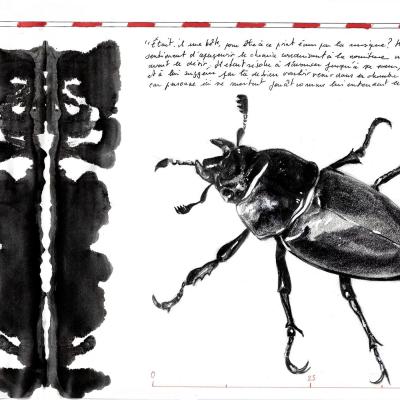 "Était-il une bête, pour être à ce point ému par la musique? Il
sentiment d'apercevoir le chemin conduisant à la nourriture
avait le désir, il était résolu à s'avancer jusqu'à sa sœur,
et à lui suggérer par là de bien vouloir venir dans sa chambre
car personne ici ne
0
25